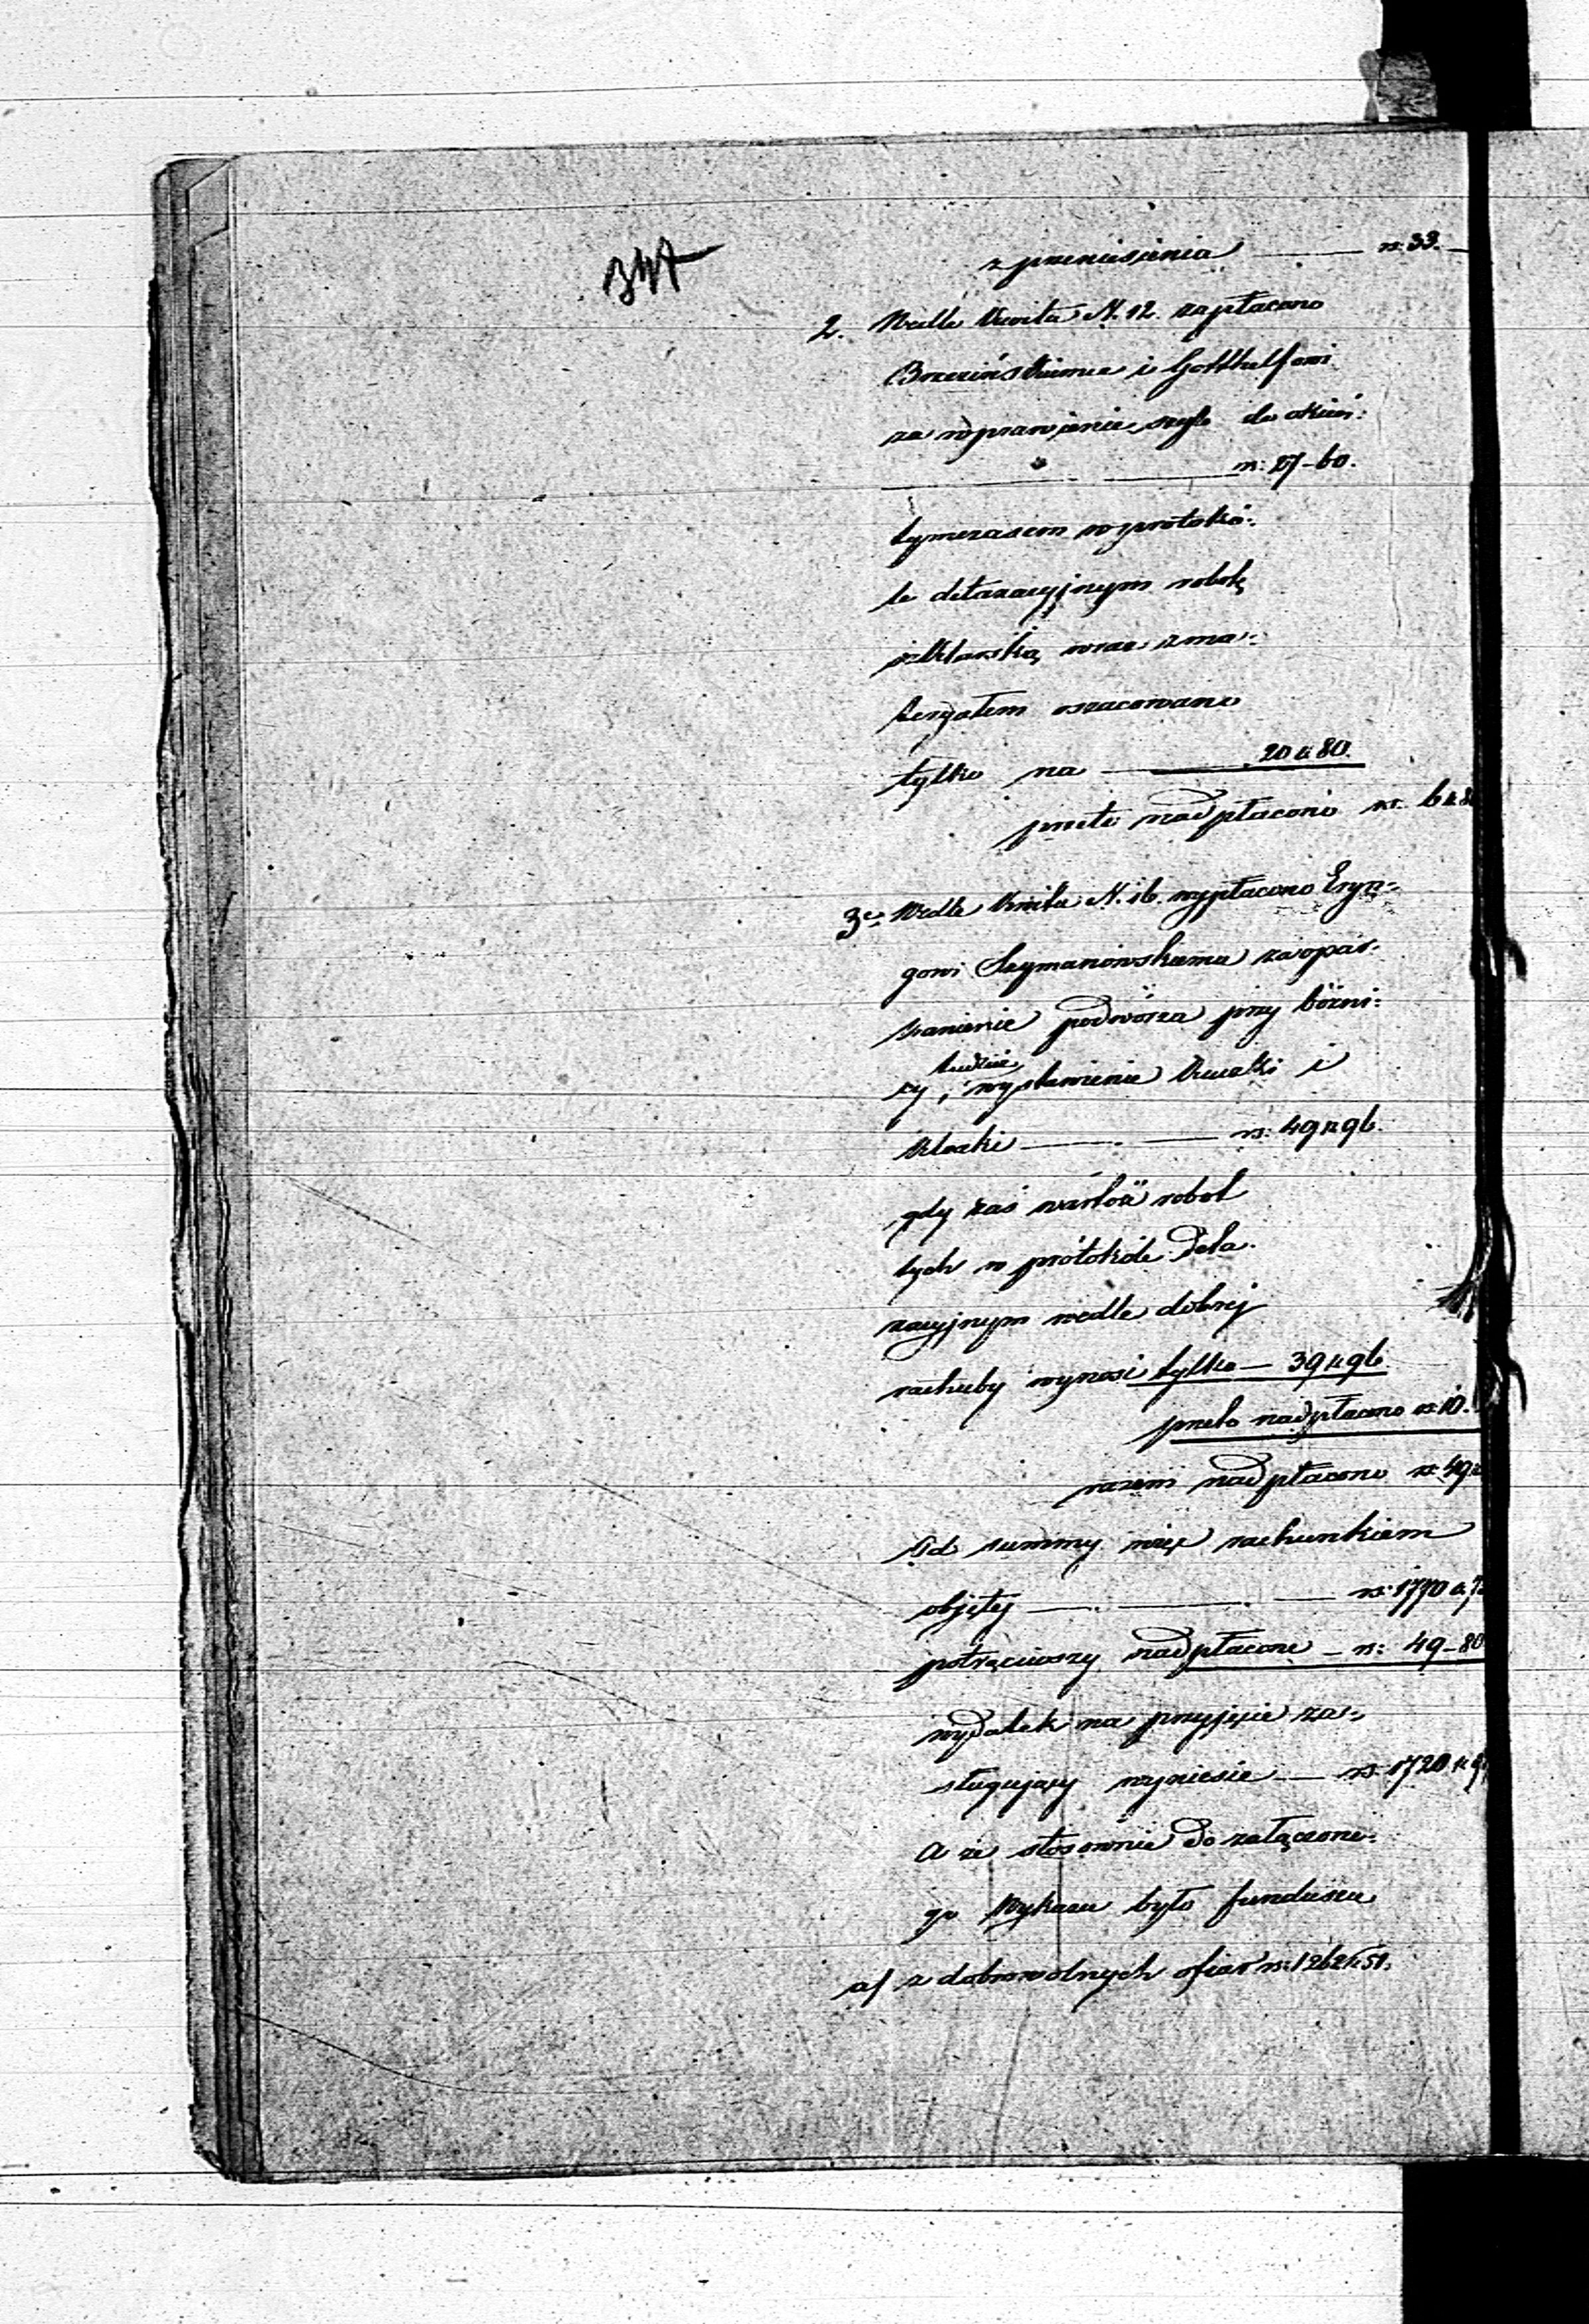 347
z przeniesienia — rs: 33. —
2. Wedle Kwitu N. 12. zapłacono
Brzezińskiemu i Gotthelfowi
za wprawienie szyb do okien:
— rs: 27-60.
tymczasem w protokó-:
le detaxacyjnym robotę
szklarską wraz z ma-:
teryałem oszacowano
tylko na — 20 k 80.
przeto nadpłacono rs. 6 k 80
3e. Wedle Kwitu N. 16. wypłacono Eryn-:
gowi Szymanowskiemu za opar-
kanienie podwórza przy bóżni-:
cy, wystawienie Kuczki i
Kloaki — rs: 49 k 96.
gdy zaś wartość robot
tych w protokóle deta-
xacyjnym wedle dobrej
rachuby wynosi tylko — 39 k 96.
przeto nadpłacono rs: 10.
razem nadpłacono rs: 49 k
Od summy więc rachunkiem
objętej — rs: 1770 k 7
potrąciwszy nadpłacone — rs: 49-80
wydatek na przyjęcie za-:
sługujący wyniesie — rs: 1720 k 9
A że stosownie do załączone-:
go Wykazu było funduszu
a/ z dobrowolnych ofiar rs: 1262 k 51.